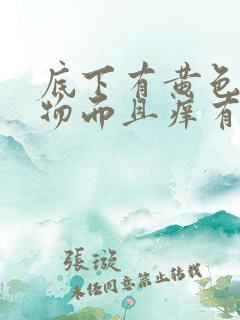 底下有黄色
物而且痒有
张璇
未经同意禁止转载